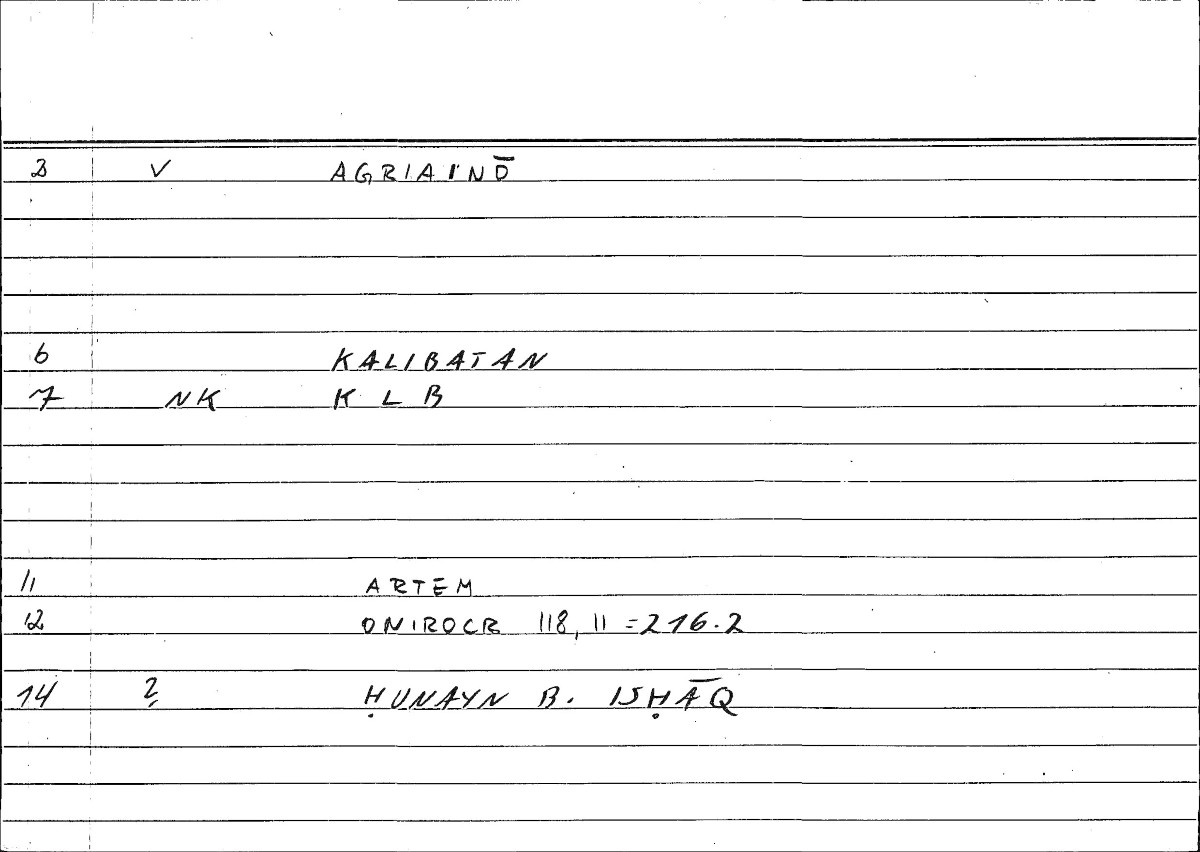 2 V AGRIAINŌ
6 KALIBATAN
7 NK K L B
11 ARTEM
12 ONIROCR 118, 11 = 216.2
14 2, ḤUNAYN B. ISḤĀQ